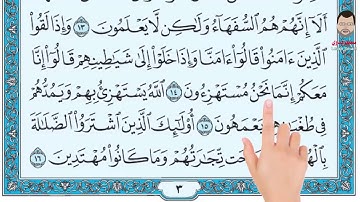 أَلَآ إِنَّهُمْ هُمُ ٱلسُّفَهَآءُ وَلَٰكِن لَّا يَعْلَمُونَ ١٣ وَإِذَا لَقُوا۟
ٱلَّذِينَ ءَامَنُوا۟ قَالُوٓا۟ ءَامَنَّا وَإِذَا خَلَوْا۟ إِلَىٰ شَيَٰطِينِهِمْ قَالُوٓا۟ إِنَّا
مَعَكُمْ إِنَّمَا نَحْنُ مُسْتَهْزِءُونَ ١٤ ٱللَّهُ يَسْتَهْزِئُ بِهِمْ وَيَمُدُّهُمْ
فِى طُغْيَٰنِهِمْ يَعْمَهُونَ ١٥ أُو۟لَٰٓئِكَ ٱلَّذِينَ ٱشْتَرَوُا۟ ٱلضَّلَٰلَةَ
تِّجَٰرَتُهُمْ وَمَا كَانُوا۟ مُهْتَدِينَ ١٦
٣